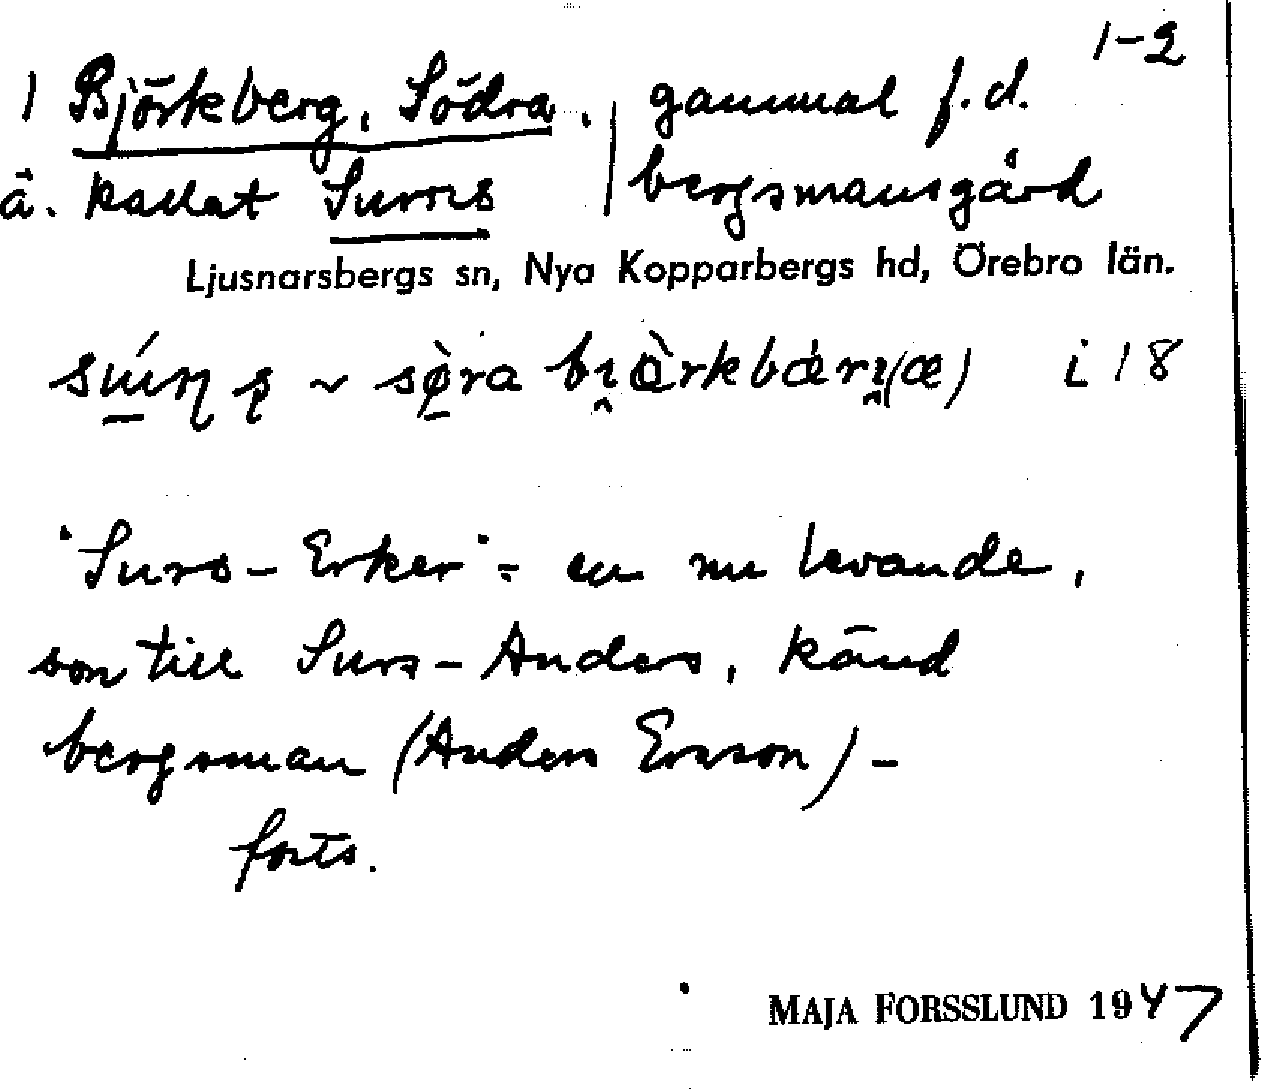 1-2
1 Björkberg, Södra. | gammal f.d.
ä. kallat Surns | bergsmansgård
Ljusnarsbergs sn, Nya Kopparbergs hd, Örebro län.
~ i 18
"Surs-Erker" = en nu levande,
son till Surs-Anders, känd
bergsman (Anders Ersson) –
forts.
MAJA FORSSLUND 1947